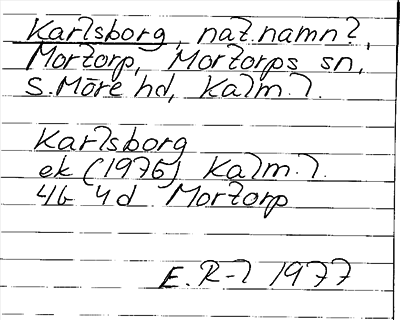 Karlsborg, nat.namn?,
Mortorp, Mortorps sn,
S.Möre hd, Kalm.l.
Karlsborg
ek (1976) Kalm.l.
4G 4d Mortorp
E.R-l 1977